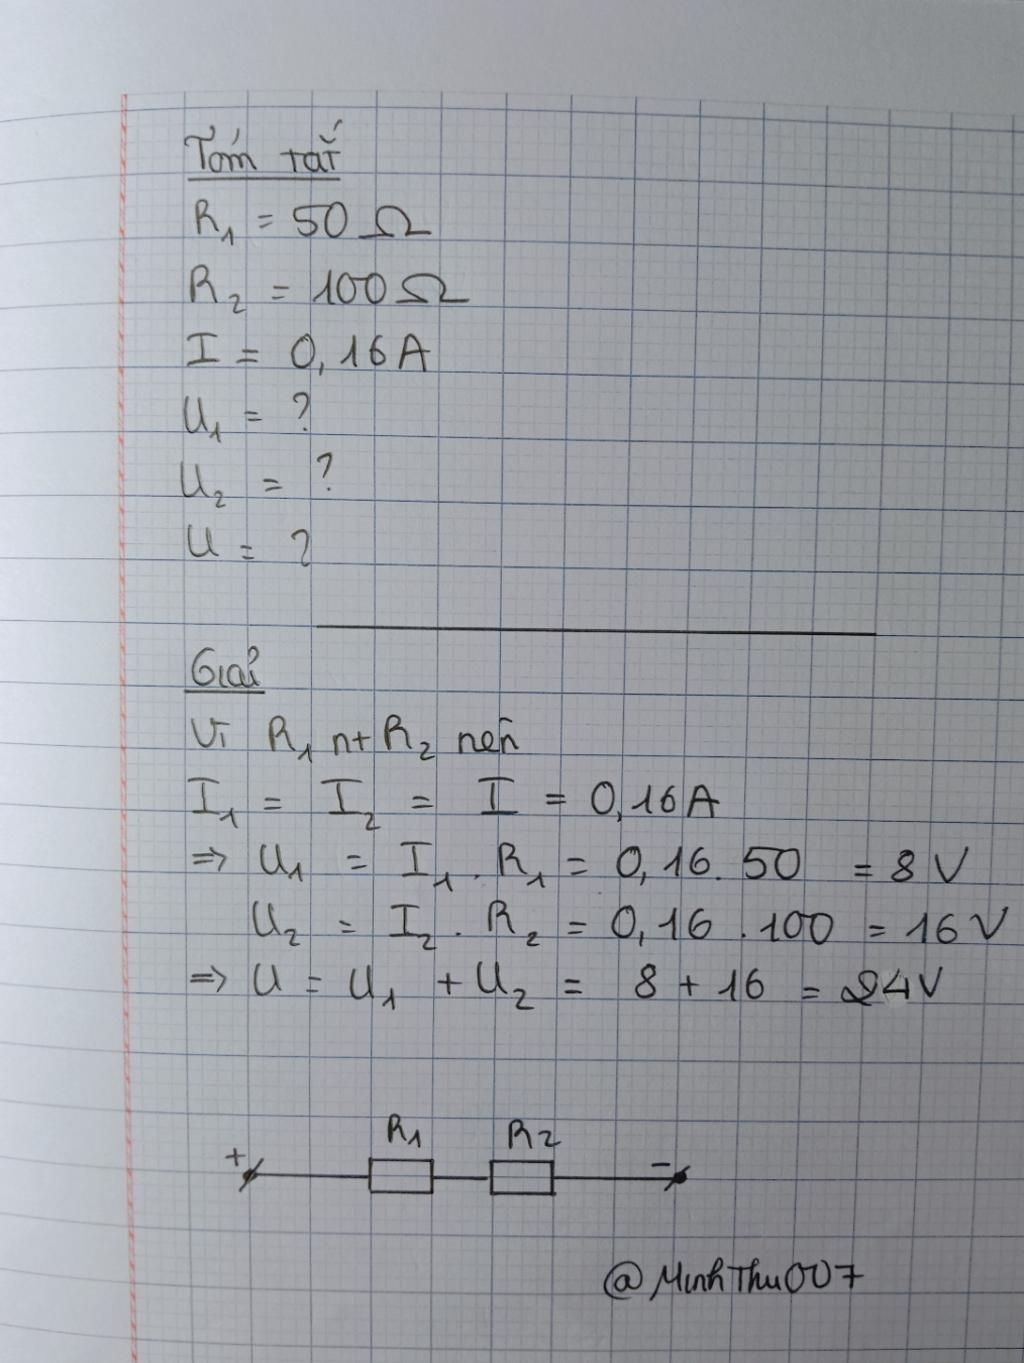 Tóm tắt
R₁ = 50 Ω
R₂ = 100 Ω
I = 0,16A
U₁ = ?
U₂ = ?
U = ?
Giải
Vì R₁ nt R₂ nên
I₁ = I₂ = I = 0,16A
=> U₁ = I₁ . R₁ = 0,16. 50 = 8 V
U₂ = I₂ . R₂ = 0,16 . 100 = 16 V
=> U = U₁ + U₂ = 8 + 16 = 24V
R1 R2
+ -
@MinhThu007